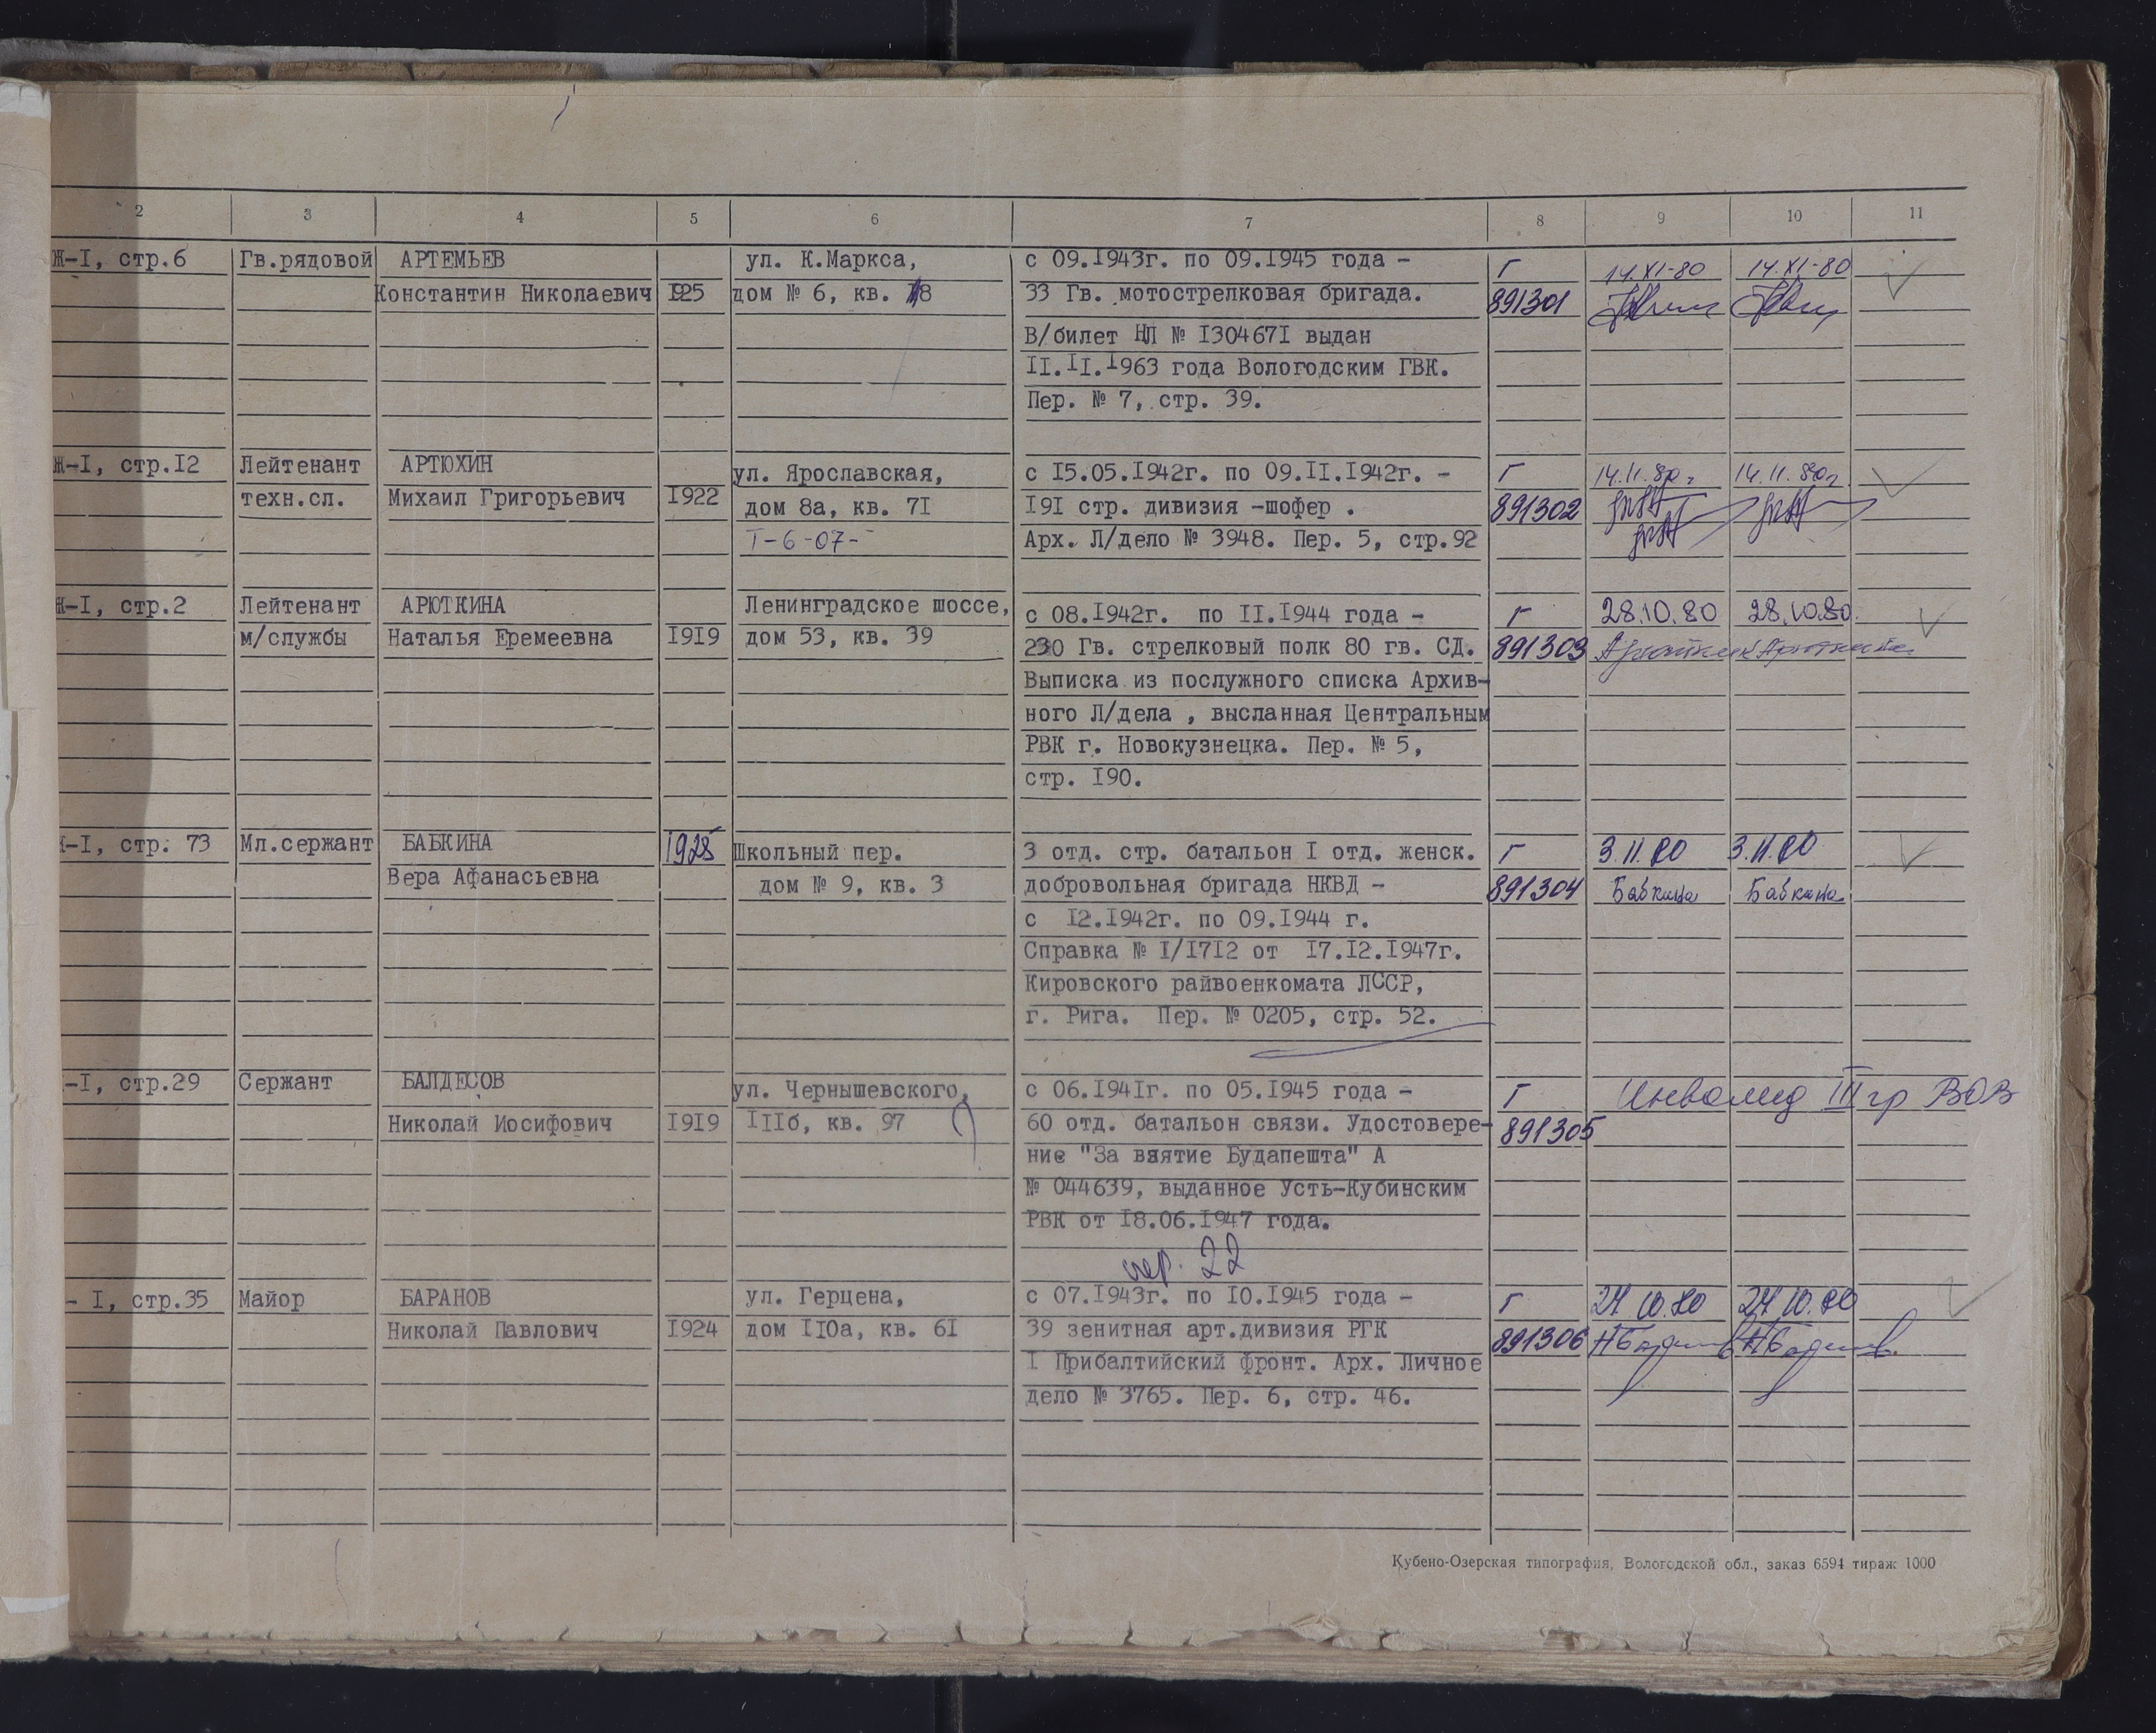 2 3 4 5 6 7 8 9 10 11
Ж-I, стр.6 Гв.рядовой АРТЕМЬЕВ ул. К.Маркса, с 09.I943г. по 09.I945 года - Г 14.XI-80 14.XI-80
Константин Николаевич I925 дом № 6, кв. 18 33 Гв. мотострелковая бригада. 891301
В/билет НЛ № I30467I выдан
II.II.I963 года Вологодским ГВК.
Пер. № 7, стр. 39.
Ж-I, стр.I2 Лейтенант АРТЮХИН ул. Ярославская, с I5.05.I942г. по 09.II.I942г. - Г 14.11.80г. 14.11.80г.
техн.сл. Михаил Григорьевич I922 дом 8а, кв. 7I I9I стр. дивизия -шофер . 891302
Т-6-07- Арх. Л/дело № 3948. Пер. 5, стр.92
Ж-I, стр.2 Лейтенант АРЮТКИНА Ленинградское шоссе, с 08.I942г. по II.I944 года - Г 28.10.80 28.10.80.
м/службы Наталья Еремеевна I9I9 дом 53, кв. 39 230 Гв. стрелковый полк 80 гв. СД. 891303 Арюткина Арюткина
Выписка из послужного списка Архив-
ного Л/дела , высланная Центральным
РВК г. Новокузнецка. Пер. № 5,
стр. I90.
-I, стр. 73 Мл.сержант БАБКИНА 1928 Школьный пер. 3 отд. стр. батальон I отд. женск. Г 3.11.80 3.11.80
Вера Афанасьевна дом № 9, кв. 3 добровольная бригада НКВД - 891304 Бабкина Бабкина
с I2.I942г. по 09.I944 г.
Справка № I/I7I2 от I7.I2.I947г.
Кировского райвоенкомата ЛССР,
г. Рига. Пер. № 0205, стр. 52.
-I, стр.29 Сержант БАЛДЕСОВ ул. Чернышевского, с 06.I94Iг. по 05.I945 года - Г Инвалид III гр ВОВ
Николай Иосифович I9I9 IIIб, кв. 97 60 отд. батальон связи. Удостовере- 891305
ние "За взятие Будапешта" А
№ 044639, выданное Усть-Кубинским
РВК от I8.06.I947 года.
пер. 22
- I, стр.35 Майор БАРАНОВ ул. Герцена, с 07.I943г. по I0.I945 года - Г 24.10.80 24.10.80
Николай Павлович I924 дом II0а, кв. 6I 39 зенитная арт.дивизия РГК 891306
I Прибалтийский фронт. Арх. Личное
дело № 3765. Пер. 6, стр. 46.
Кубено-Озерская типография, Вологодской обл., заказ 6594 тираж 1000